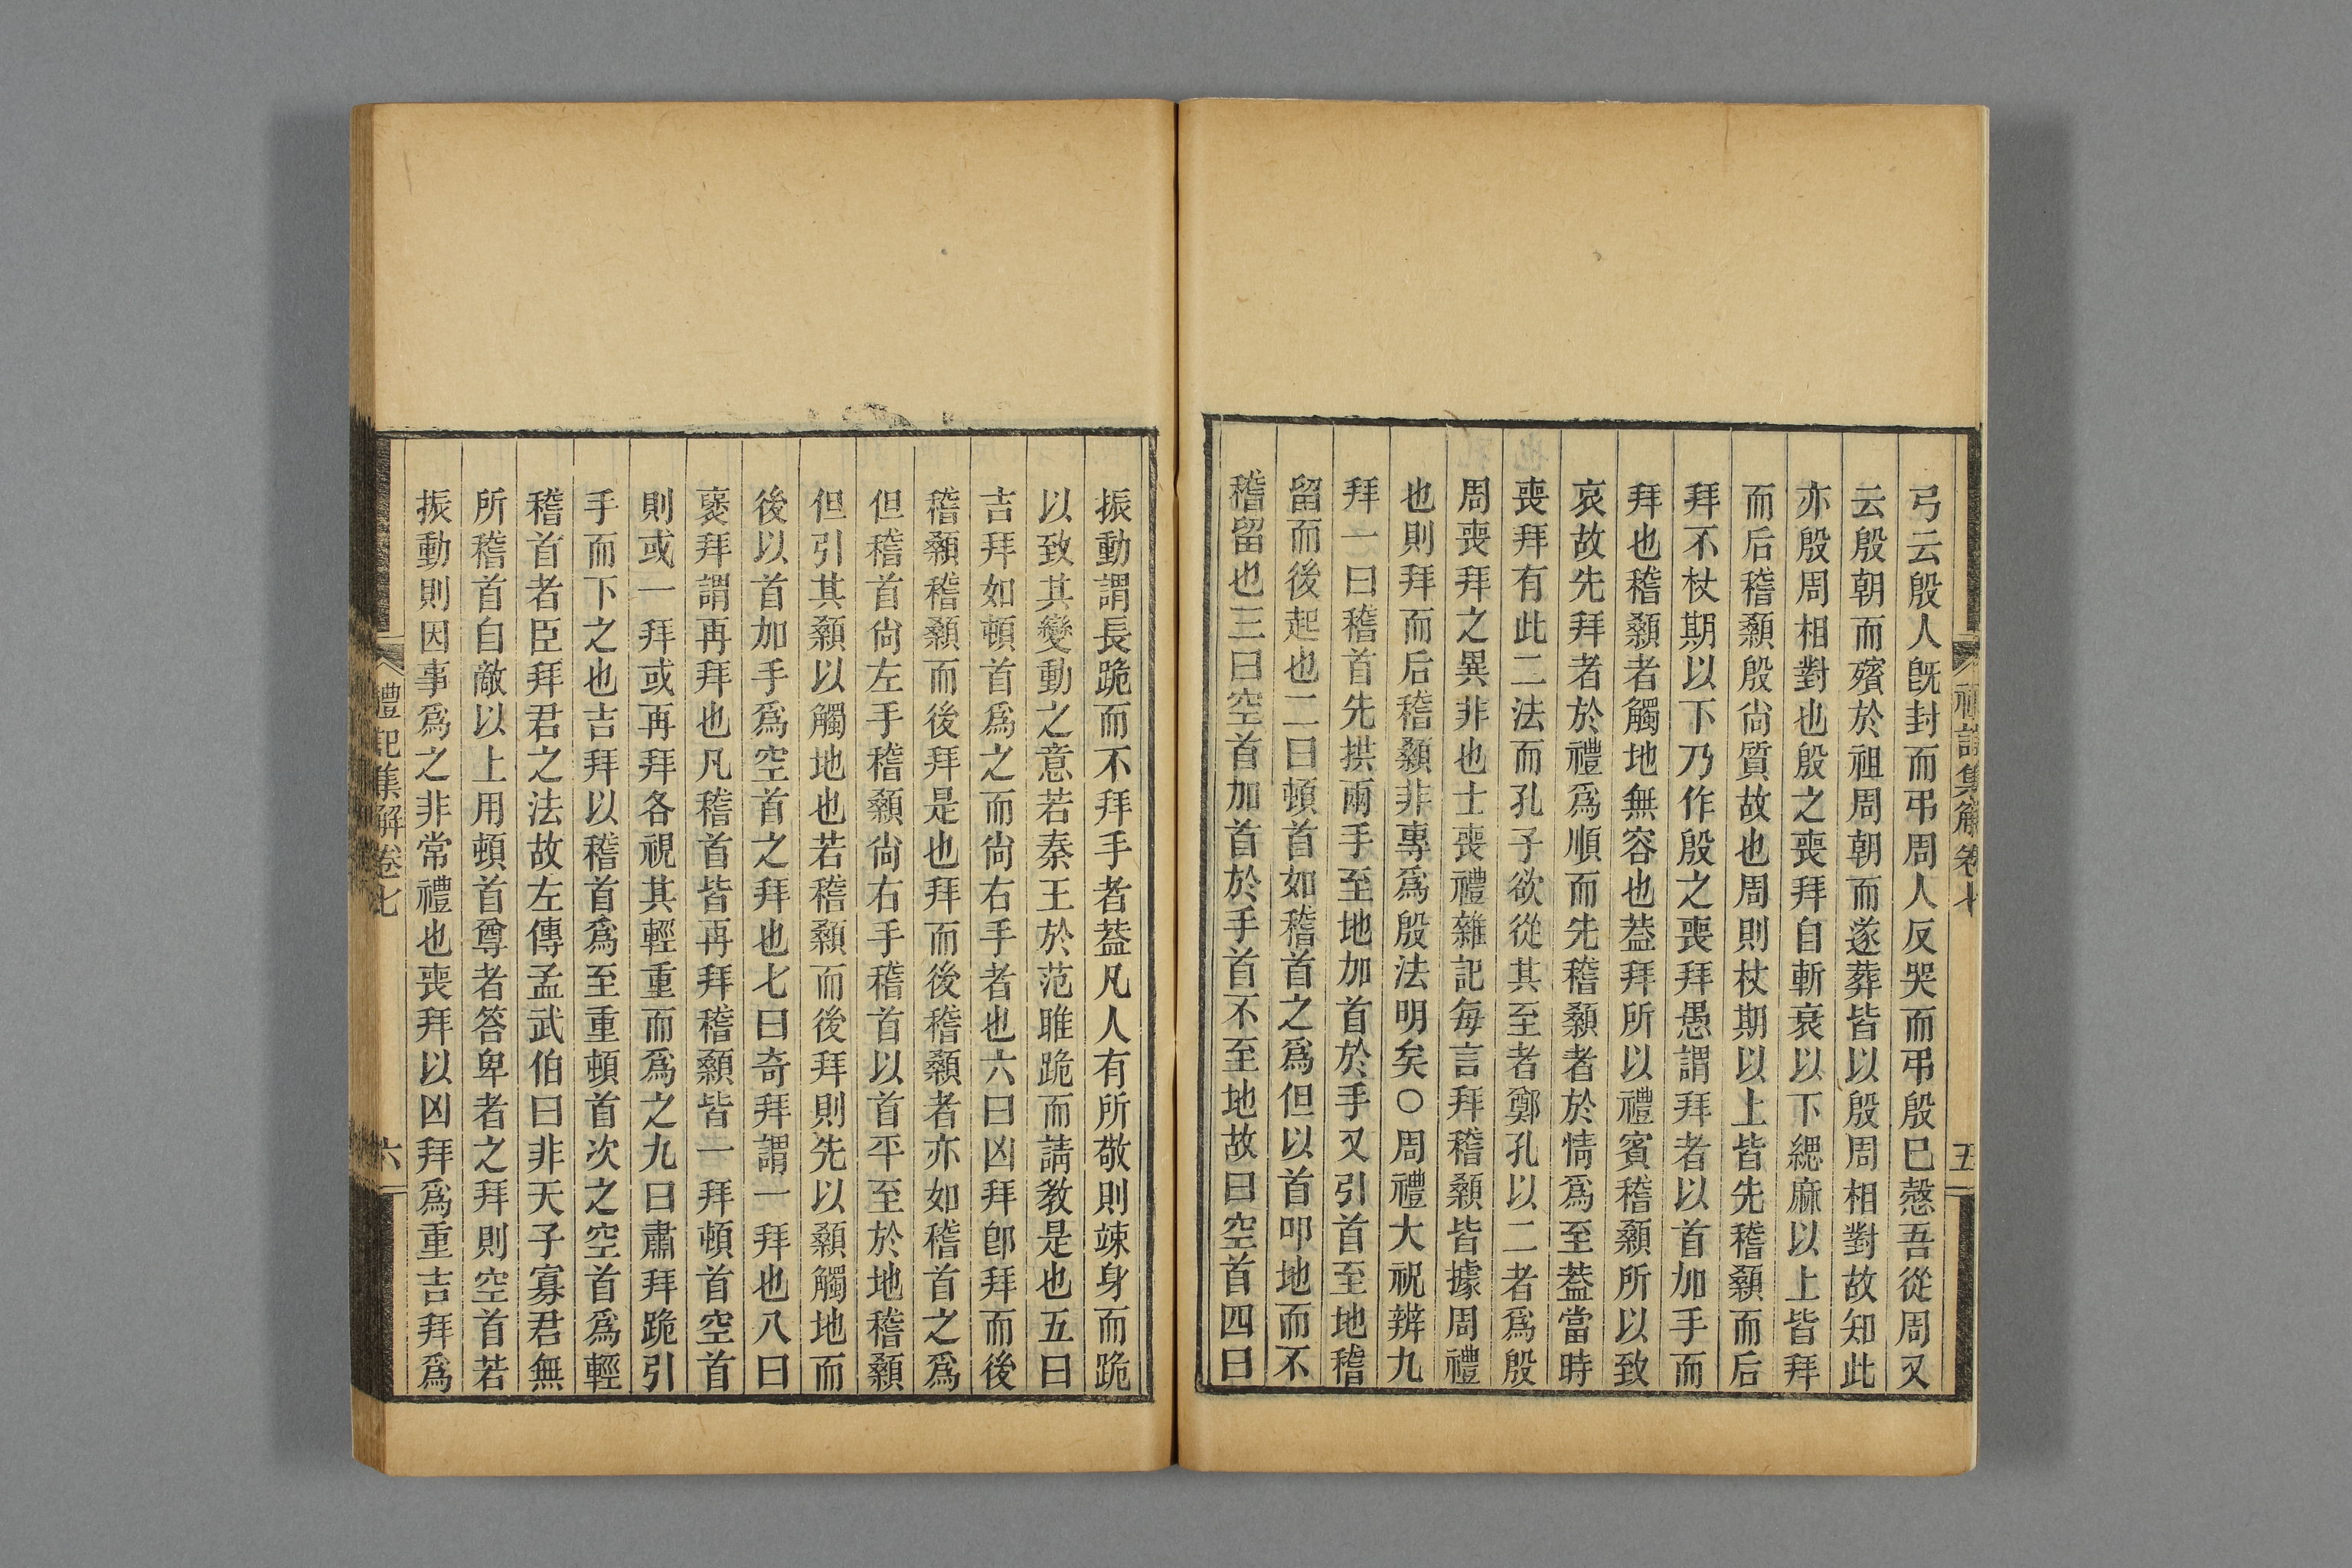 禮記集解卷七
五
弓云殷人旣封而弔周人反哭而弔殷巳慤吾從周又
云殷朝而殯於祖周朝而遂葬皆以殷周相對故知此
亦殷周相對也殷之喪拜自斬衰以下緦麻以上皆拜
而后稽顙殷尙質故也周則杖期以上皆先稽顙而后
拜不杖期以下乃作殷之喪拜愚謂拜者以首加手而
拜也稽顙者觸地無容也葢拜所以禮賓稽顙所以致
哀故先拜者於禮爲順而先稽顙者於情爲至葢當時
喪拜有此二法而孔子欲從其至者鄭孔以二者爲殷
周喪拜之異非也士喪禮雜記每言拜稽顙皆據周禮
也則拜而后稽顙非專爲殷法明矣○周禮大祝辨九
拜一曰稽首先拱兩手至地加首於手又引首至地稽
留而後起也二曰頓首如稽首之爲但以首叩地而不
稽留也三曰空首加首於手首不至地故曰空首四曰
振動謂長跪而不拜手者葢凡人有所敬則竦身而跪
以致其變動之意若秦王於范雎跪而請教是也五曰
吉拜如頓首爲之而尙右手者也六曰凶拜卽拜而後
稽顙稽顙而後拜是也拜而後稽顙者亦如稽首之爲
但稽首尙左手稽顙尙右手稽首以首平至於地稽顙
但引其顙以觸地也若稽顙而後拜則先以顙觸地而
後以首加手爲空首之拜也七曰奇拜謂一拜也八曰
褒拜謂再拜也凡稽首皆再拜稽顙皆一拜頓首空首
則或一拜或再拜各視其輕重而爲之九曰肅拜跪引
手而下之也吉拜以稽首爲至重頓首次之空首爲輕
稽首者臣拜君之法故左傳孟武伯曰非天子寡君無
所稽首自敵以上用頓首尊者答卑者之拜則空首若
振動則因事爲之非常禮也喪拜以凶拜爲重吉拜爲
禮記集解卷七
六